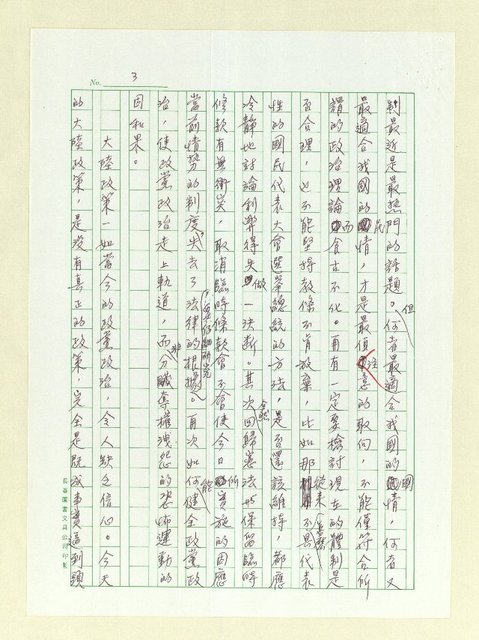 No. 3
制最近是最熱門的話題。但何者最適合我國的國情，何者又
最適合我國的民情，才是最值注意的取向，不能僅符合所
謂的政治理論而食古不化。再有一定要檢討現在的體制是
否合理，也不能堅持教條不肯放棄，比如那從來不具代表
性的國民代表大會選舉總統的方法，是否還該維持，都應
冷靜地討論利弊得失做一決斷。其次回歸憲法與保留臨時
條款有無衝突，取消臨時條款會不會使今日所實施的因應
當前情勢的制度失去了法律的根據。要仔細研究再次如何能健全政黨政
治，使政黨政治走上軌道，而非分贓奪權洩怨的恐怖運動的
因和果。
大陸政策一如當今的政黨政治，令人缺乏信心。今天
的大陸政策，是沒有真正的政策，完全是既成事實逼到頭
長春圖書文具公司印製